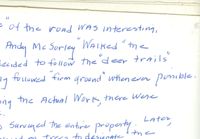 " of the road was interesting,
Andy McSorley "Walked" the
decided to follow the "deer trails"
followed "firm ground" whenever possible.
the Actual Work, there were
surveyed the entire property. Later,
trees to designate the